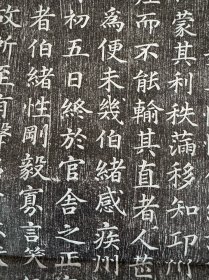 蒙其利秩滿移知邛州
而不能輸其直者人甚
為便未幾伯緒感疾州
初五日終於官舍之正
者伯緒性剛毅寡言笑
故所至有聲